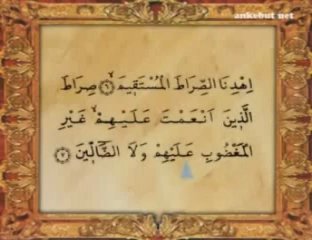 ankebut net
اِهْدِنَا الصِّرَاطَ الْمُسْتَق۪يمَۙ ﴿٦﴾ صِرَاطَ
الَّذ۪ينَ اَنْعَمْتَ عَلَيْهِمْۙ غَيْرِ
الْمَغْضُوبِ عَلَيْهِمْ وَلَا الضَّٓالّ۪ينَ ﴿٧﴾